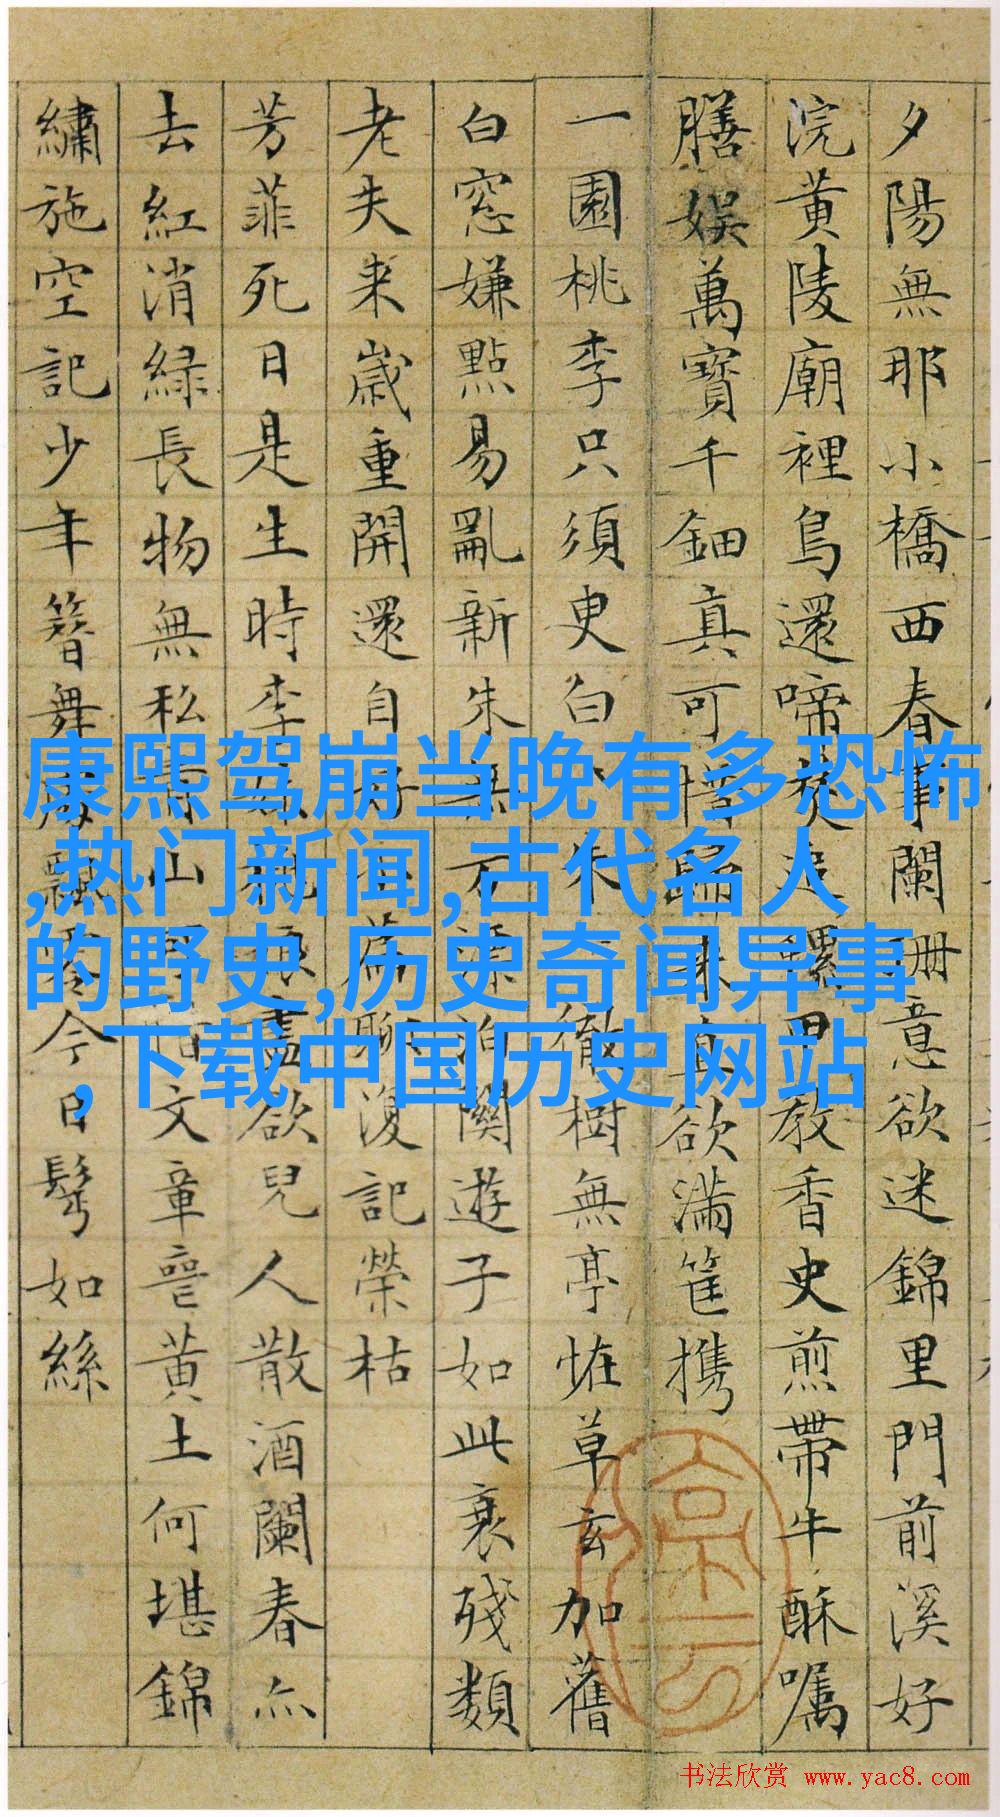 夕陽無那小橋西春事闌珊意欲迷錦里門前溪好
浣黄陵廟裡鳥還啼焚追螺甲教香史煎帶牛酥囑
膳娛萬寶千鈿真可惜歸來直欲滿筐携
一園桃李只須臾白朱徹樹無亭恠草玄加舊
白窓嫌點易亂新朱無不漂泊關遊子如此衰殘類
老夫来歲重開還自好篇聊復記榮枯
芳菲死日是生時李娘盡欲兒人散酒闌春亦
去紅消緑長物無私山文章喪黄土何堪錦
繡施空記少年簪舞處飄零今日鬢如絲
康熙驾崩当晚有多恐怖
,热门新闻,古代名人
的野史,历史奇闻异事
,下载中国历史网站
书法欣赏 www.yac8.com